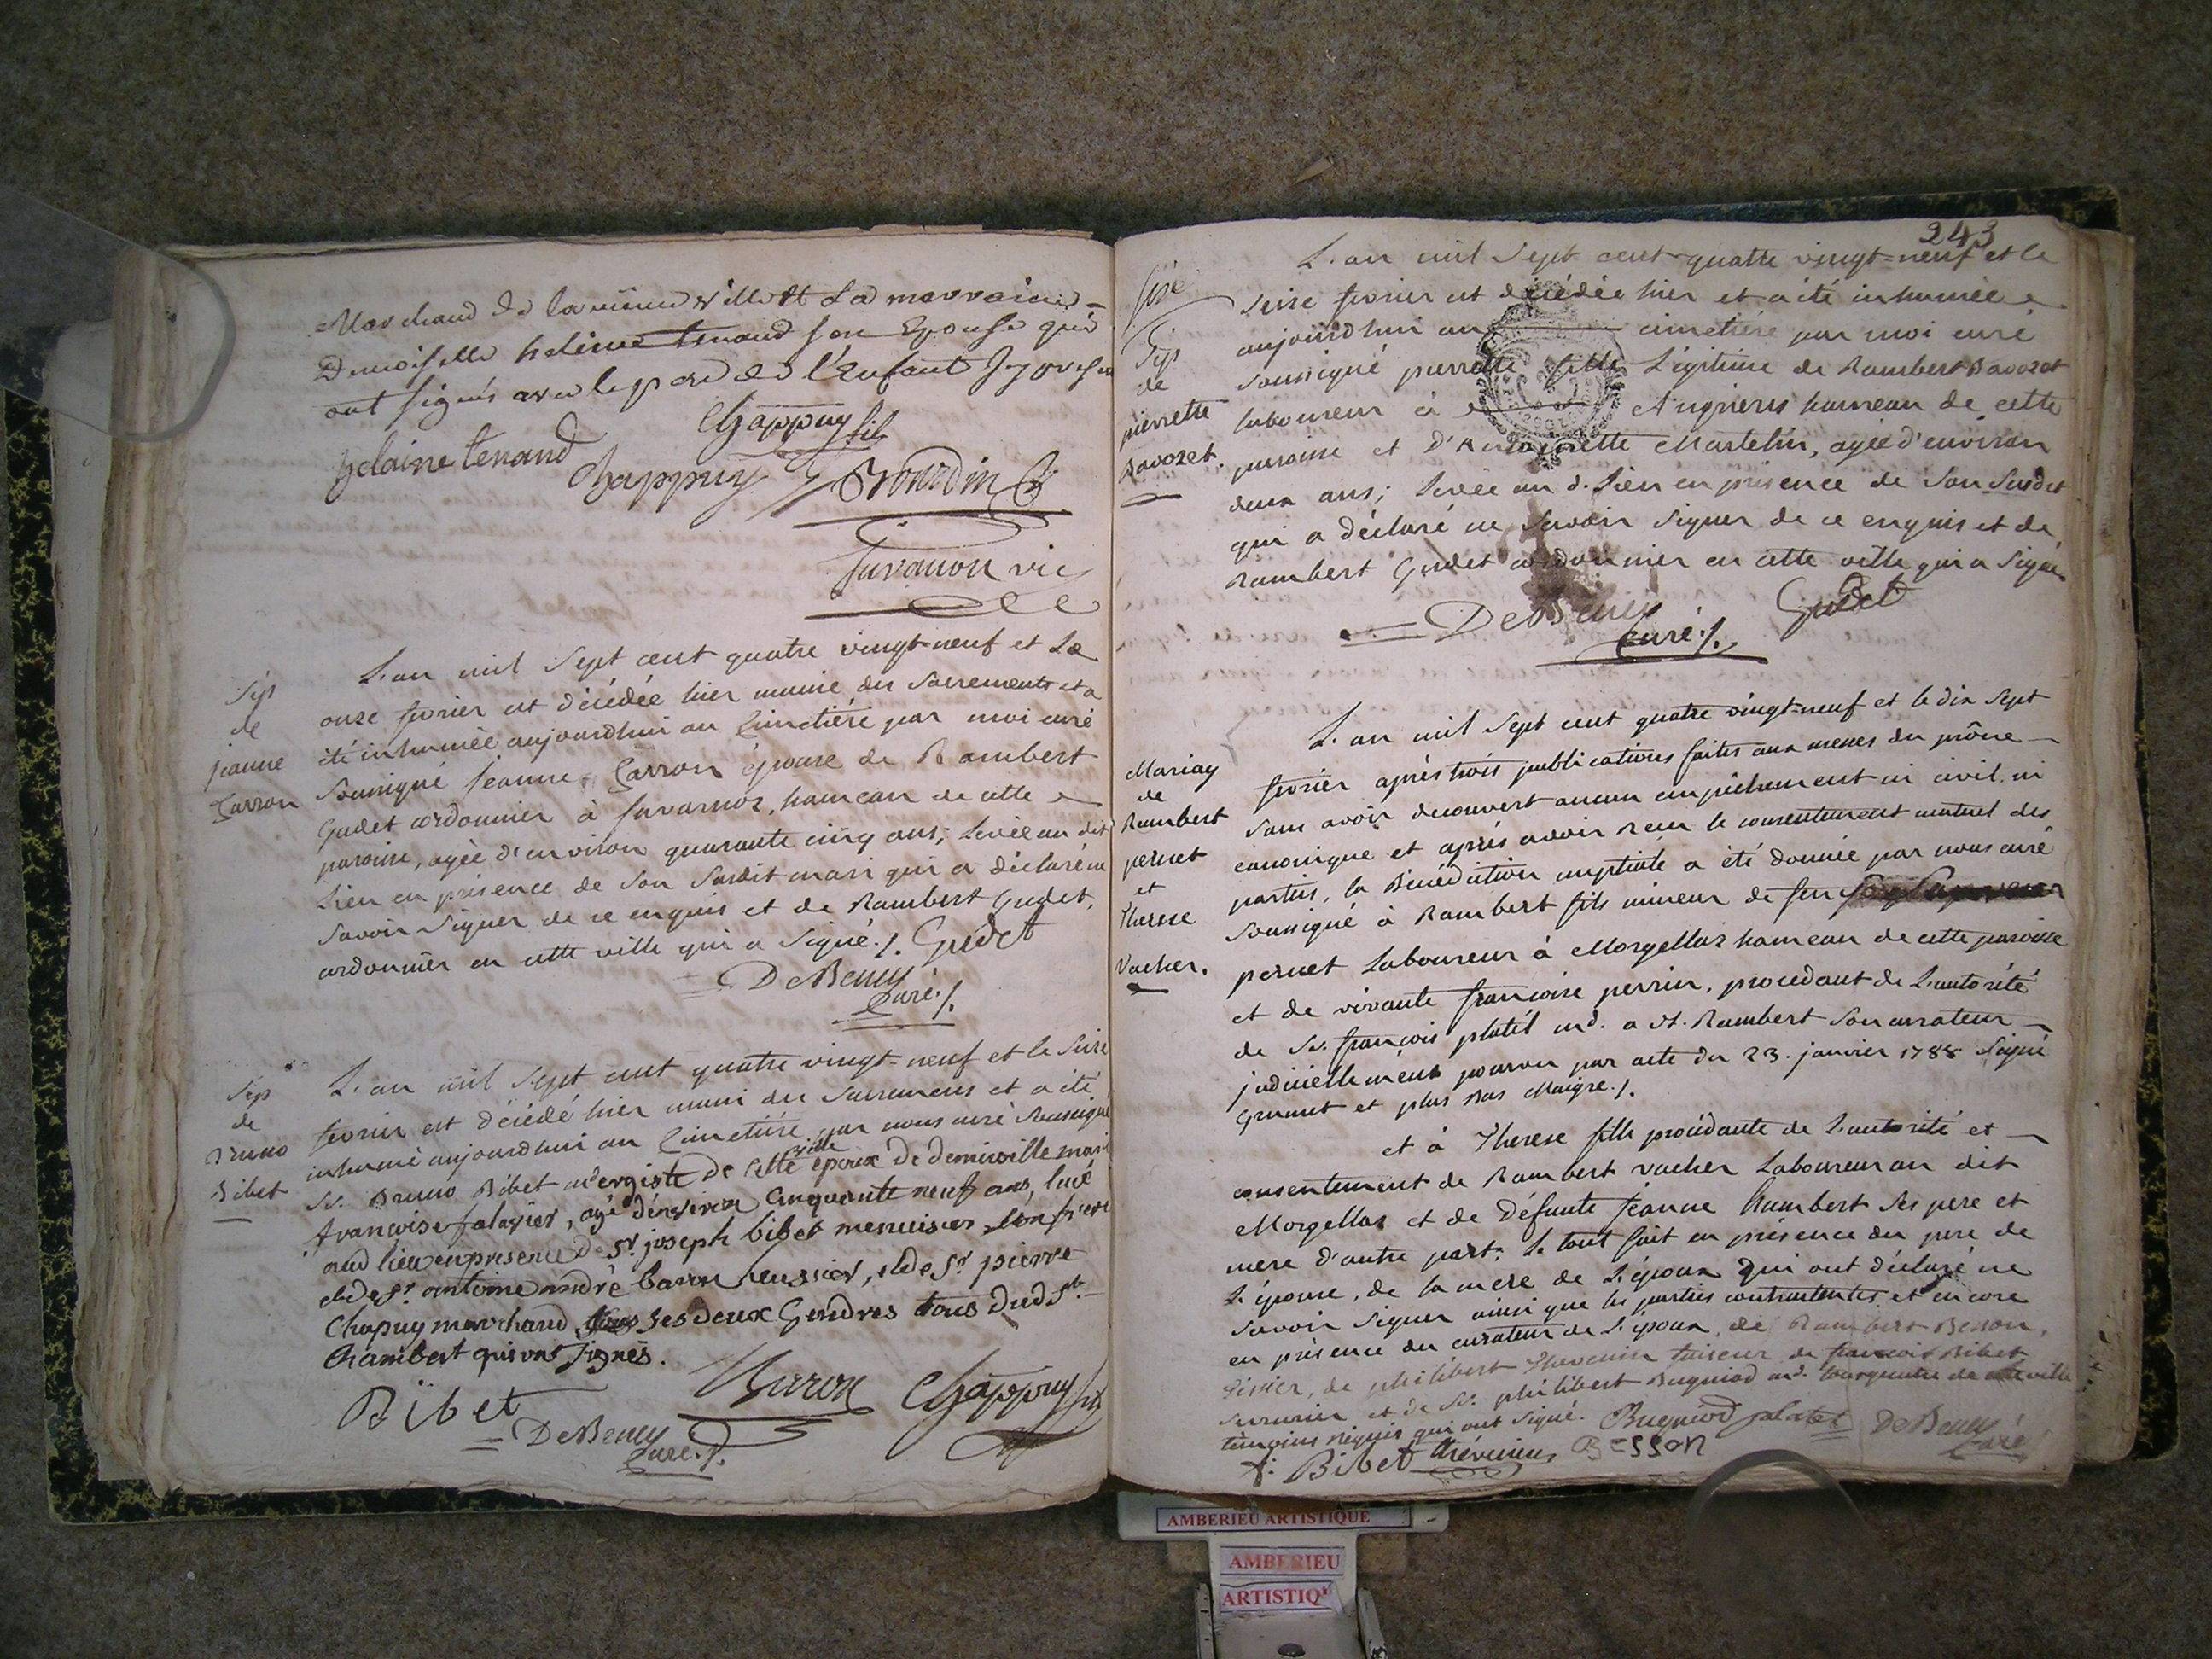 Marchand de la même ville et la marraine
Demoiselle helene tenand son Epouse qui
ont signés avec le pere de l'enfant
Chappuy fils
helaine tenand
Chappuy
Bourdin
Savarion vic
Sep
de
jeanne
Carron
L'an mil sept cent quatre vingt-neuf et Le
onze fevrier est décédée hier munie des sacrements et a
été inhumée aujourdhui au Cimetière par moi curé
soussigné jeanne Carron épouse de Rambert
Gudet cordonnier à Javarnoz, hameau de cette
paroisse, agée d'environ quarante cinq ans; Levée au dit
Lieu en présence de son susdit mari qui a déclaré ne
savoir signer de ce enquis et de Rambert Gudet,
cordonnier en cette ville qui a signé./. Guedet
DeBeney
Curé./.
Sep
de
Bruno
Bibet
L'an mil sept cent quatre vingt-neuf et le seize
fevrier est décédé hier muni des sacremens et a été
inhumé aujourdhui au Cimetière par nous curé soussigné
Sr. Bruno Bibet de cette ville époux de demoiselle marie
francoise falavier, agé d'environ Cinquante neuf ans, levé
aud lieu en presence de Sr joseph bibet menuisier son frere
et de Sr. antoine andré baron huissier, et de Sr pierre
Chapuy marchand ses deux Gendres tous dud St.
Rambert qui ont signés.
Bibet
Baron
Chappuy fils
DeBeney
Curé./.
243
Sep
de
pierrette
Savozet.
L'an mil sept cent quatre vingt-neuf et le
seize fevrier est décédée hier et a été inhumée
aujourdhui au cimetière par moi curé
soussigné pierrette fille Légitime de Rambert Savozet
laboureur à Angrieres hameau de cette
paroisse et d'Antoinette Martelin, agée d'environ
deux ans; Levée au d. Lien en présence de son susdit
qui a déclaré ne savoir signer de ce enquis et de
Rambert Gudet cordonnier en cette ville qui a signé.
DeBeney
Curé./.
Guedet
Mariag
de
Rambert
pernet
et
Therese
Vacher.
L'an mil sept cent quatre vingt-neuf et le dix sept
fevrier après trois publications faites aux messes du prône
sans avoir decouvert aucun empêchement ni civil ni
canonique et après avoir reçu le consentement mutuel des
parties, la Bénédiction nuptiale a été donnée par nous curé
soussigné à Rambert fils mineur de feu
pernet Laboureur à Morgellas hameau de cette paroisse
et de vivante françoise perrin, procedant de L'autorité
de Sr. françois platet md. a St. Rambert son curateur
judiciellement pourvu par acte du 23. janvier 1788 signé
Grumet et plus Bas Maigre./.
et à Therese fille procédante de L'autorité et
consentement de Rambert vacher Laboureur au dit
Morgellas et de Défunte jeanne humbert ses pere et
mere d'autre part. Le tout fait en présence du pere de
L'épouse, de la mere de L'époux qui ont déclaré ne
savoir signer ainsi que les parties contractantes et encore
en présence du curateur de L'époux, de Rambert Besson,
tissier, de philibert Thevenin de françois Bibet
serrurier et de Sr. philibert Bugniod md. de cette ville
témoins réquis qui ont signé. Bugniod platet DeBeney
Curé
f. Bibet thévenin Besson
AMBERIEU ARTISTIQUE
AMBERIEU
ARTISTIQ